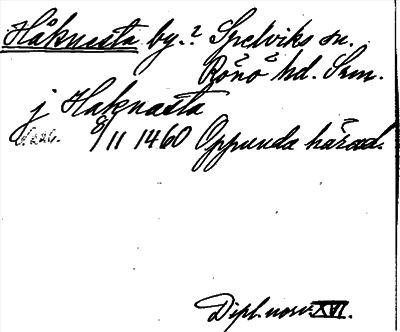 Håknesta by.? Spelviks sn.
Rönö hd. Srm.
j Haknasta
8/11 1460 Oppunda härad.
Dipl. norv. XVI.